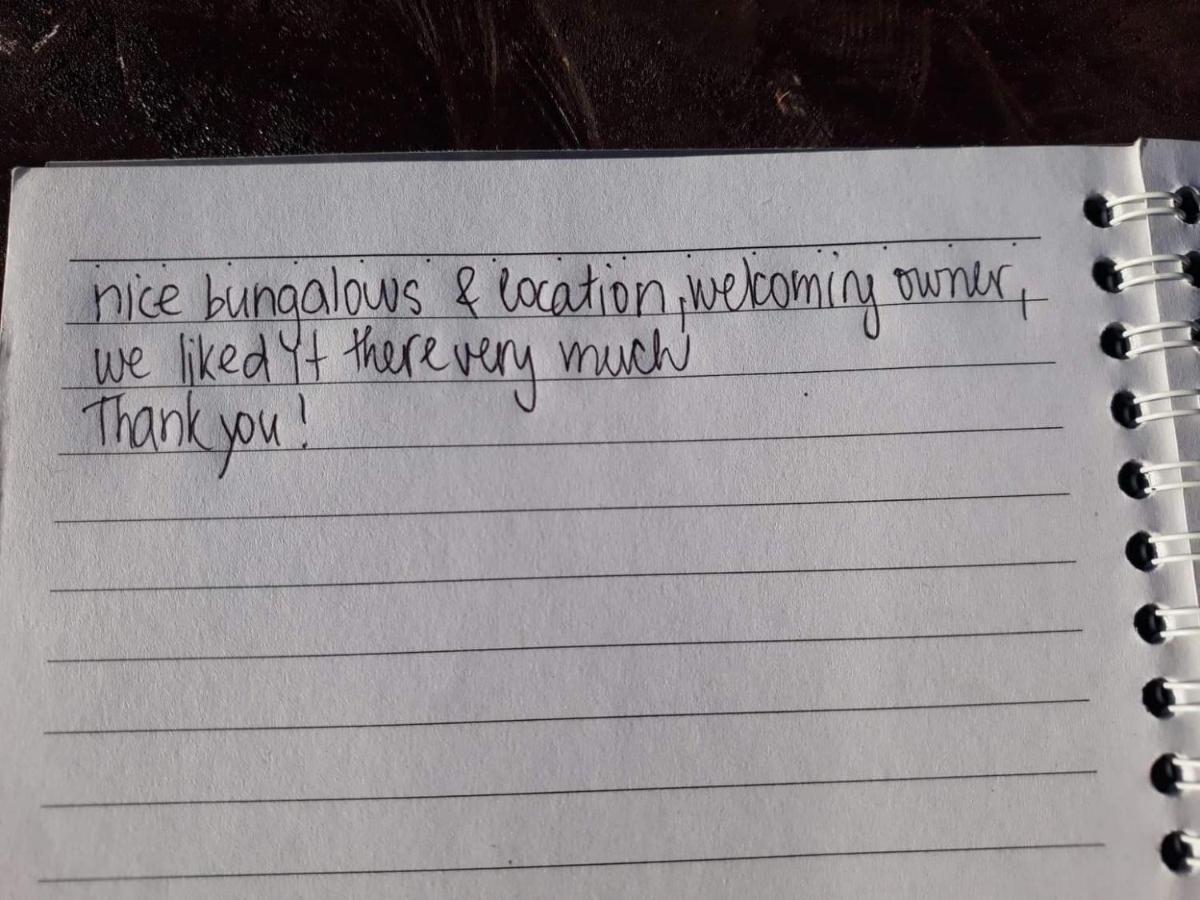 nice bungalows & location, welcoming owner,
we liked it there very much
Thank you!